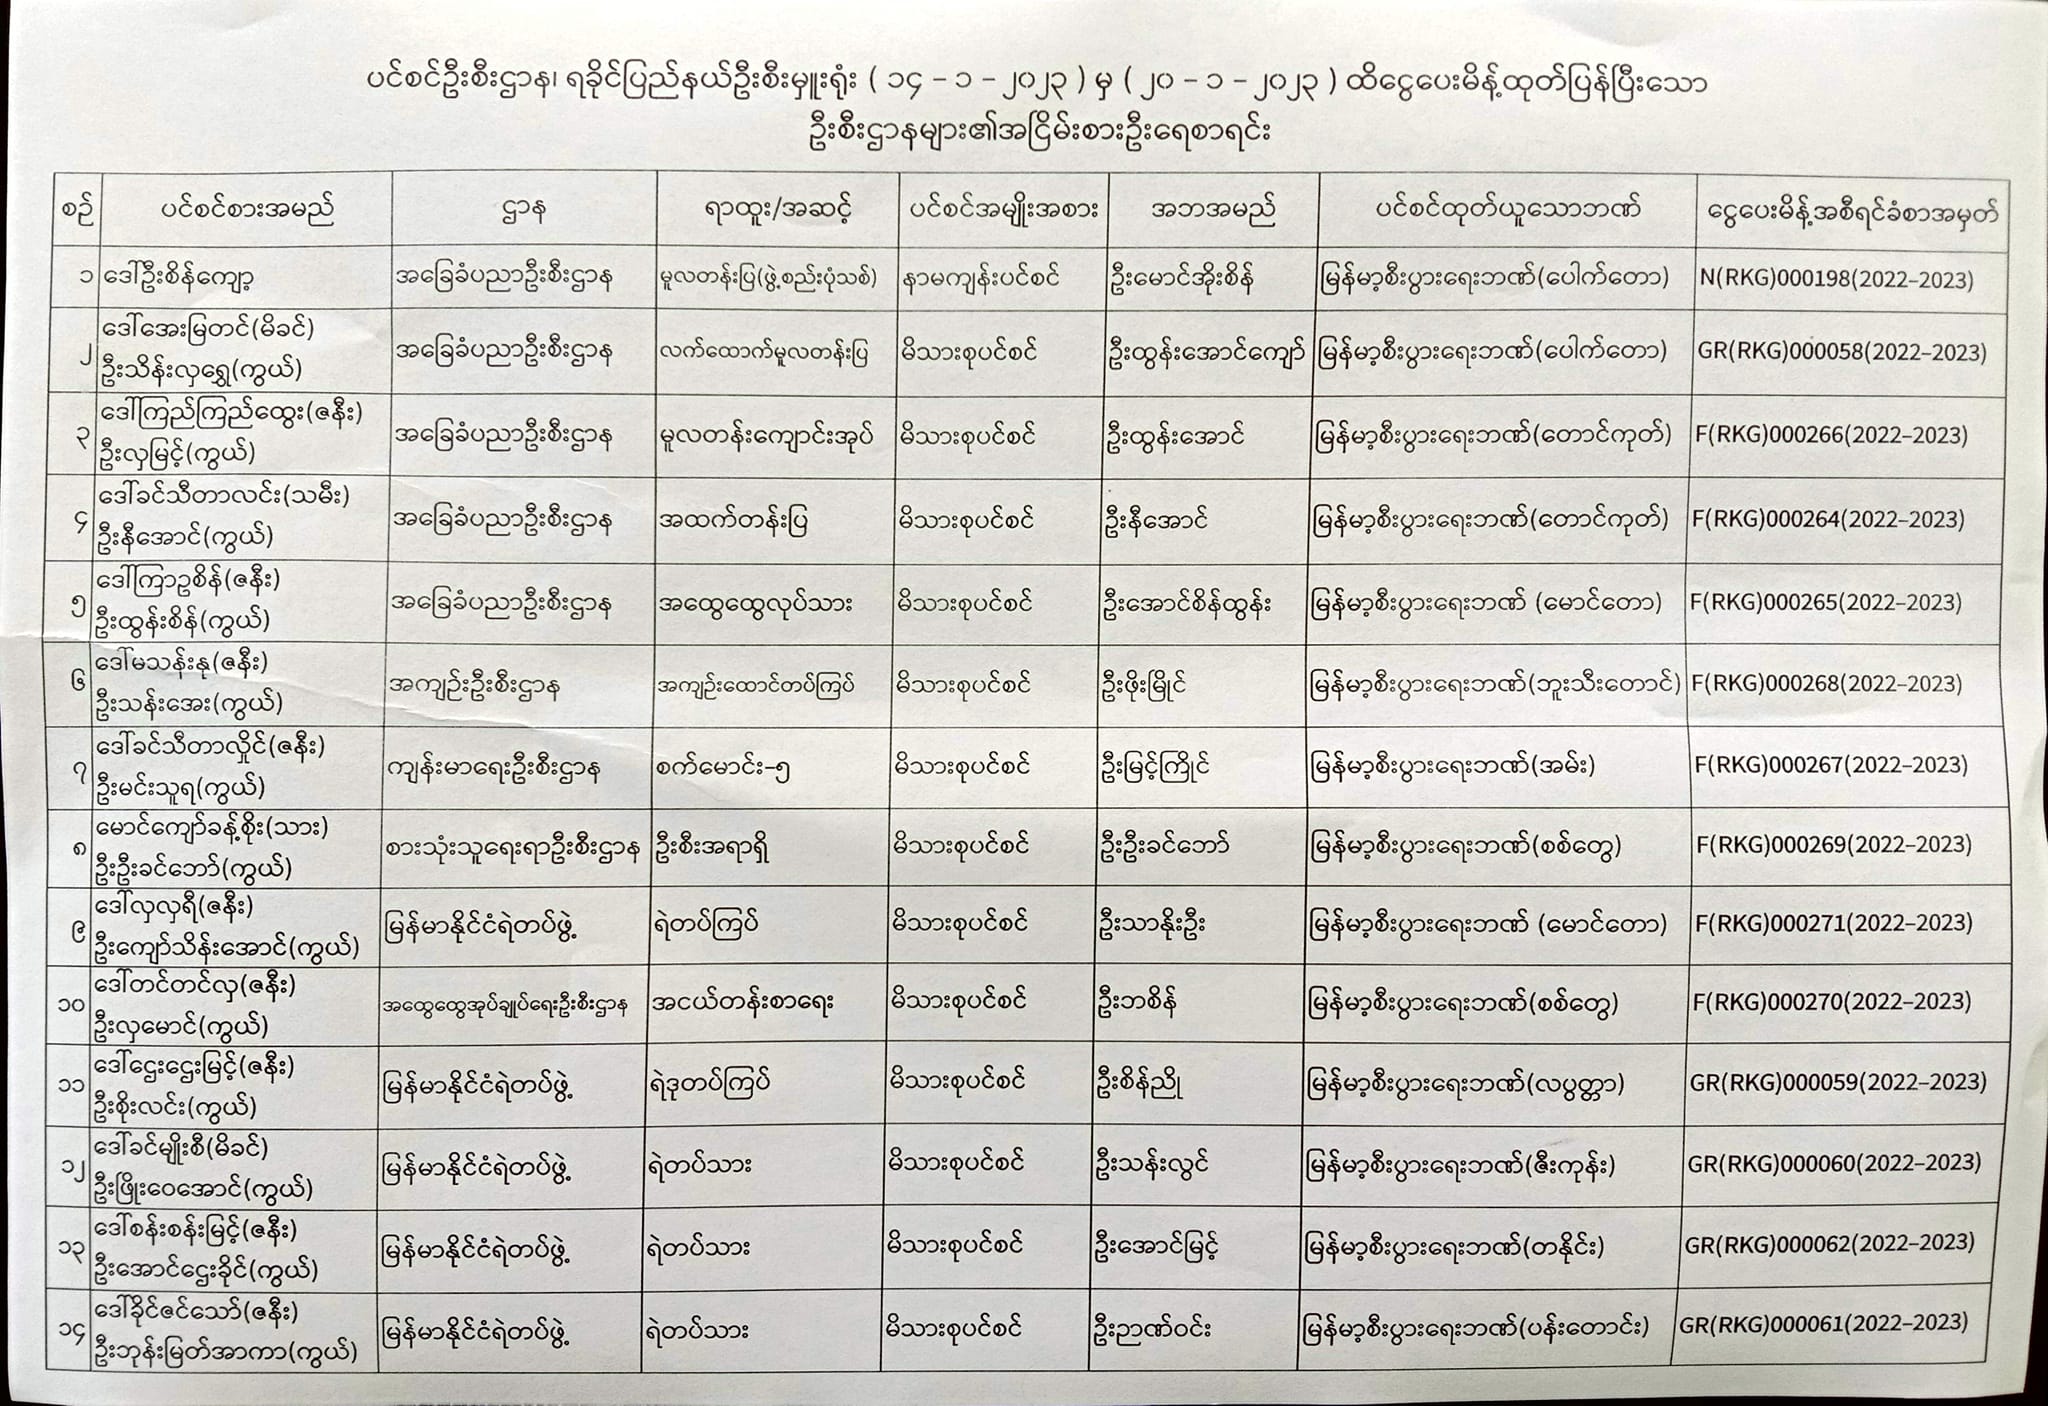 ပင်စင်ဦးစီးဌာန၊ ရခိုင်ပြည်နယ်ဦးစီးမှူးရုံး ( ၁၄ – ၁ – ၂၀၂၃ ) မှ ( ၂၀ – ၁ – ၂၀၂၃ ) ထိငွေပေးမိန့်ထုတ်ပြန်ပြီးသော
ဦးစီးဌာနများ၏အငြိမ်းစားဦးရေစာရင်း
စဉ် ပင်စင်စားအမည် ဌာန ရာထူး/အဆင့် ပင်စင်အမျိုးအစား အဘအမည် ပင်စင်ထုတ်ယူသောဘဏ် ငွေပေးမိန့်အစီရင်ခံစာအမှတ်
၁ ဒေါ်ဦးစိန်ကျော့ အခြေခံပညာဦးစီးဌာန မူလတန်းပြ(ဖွဲ့စည်းပုံသစ်) နာမကျန်းပင်စင် ဦးမောင်အိုးစိန် မြန်မာ့စီးပွားရေးဘဏ်(ပေါက်တော) N(RKG)000198(2022–2023)
ဒေါ်အေးမြတင်(မိခင်)
၂ အခြေခံပညာဦးစီးဌာန လက်ထောက်မူလတန်းပြ မိသားစုပင်စင် ဦးထွန်းအောင်ကျော် မြန်မာ့စီးပွားရေးဘဏ်(ပေါက်တော) GR(RKG)000058(2022–2023)
ဦးသိန်းလှရွှေ(ကွယ်)
ဒေါ်ကြည်ကြည်ထွေး(ဇနီး)
၃ အခြေခံပညာဦးစီးဌာန မူလတန်းကျောင်းအုပ် မိသားစုပင်စင် ဦးထွန်းအောင် မြန်မာ့စီးပွားရေးဘဏ်(တောင်ကုတ်) F(RKG)000266(2022–2023)
ဦးလှမြင့်(ကွယ်)
ဒေါ်ခင်သီတာလင်း(သမီး)
၄ အခြေခံပညာဦးစီးဌာန အထက်တန်းပြ မိသားစုပင်စင် ဦးနီအောင် မြန်မာ့စီးပွားရေးဘဏ်(တောင်ကုတ်) F(RKG)000264(2022–2023)
ဦးနီအောင်(ကွယ်)
ဒေါ်ကြာဥစိန်(ဇနီး)
၅ အခြေခံပညာဦးစီးဌာန အထွေထွေလုပ်သား မိသားစုပင်စင် ဦးအောင်စိန်ထွန်း မြန်မာ့စီးပွားရေးဘဏ် (မောင်တော) F(RKG)000265(2022–2023)
ဦးထွန်းစိန်(ကွယ်)
ဒေါ်မသန်းနု(ဇနီး)
၆ အကျဉ်းဦးစီးဌာန အကျဉ်းထောင်တပ်ကြပ် မိသားစုပင်စင် ဦးဖိုးမြိုင် မြန်မာ့စီးပွားရေးဘဏ်(ဘူးသီးတောင်) F(RKG)000268(2022–2023)
ဦးသန်းအေး(ကွယ်)
ဒေါ်ခင်သီတာလှိုင်(ဇနီး)
၇ ကျန်းမာရေးဦးစီးဌာန စက်မောင်း–၅ မိသားစုပင်စင် ဦးမြင့်ကြိုင် မြန်မာ့စီးပွားရေးဘဏ်(အမ်း) F(RKG)000267(2022–2023)
ဦးမင်းသူရ(ကွယ်)
မောင်ကျော်ခန့်စိုး(သား)
၈ စားသုံးသူရေးရာဦးစီးဌာန ဦးစီးအရာရှိ မိသားစုပင်စင် ဦးဦးခင်ဘော် မြန်မာ့စီးပွားရေးဘဏ်(စစ်တွေ) F(RKG)000269(2022–2023)
ဦးဦးခင်ဘော်(ကွယ်)
ဒေါ်လှလှရီ(ဇနီး)
၉ မြန်မာနိုင်ငံရဲတပ်ဖွဲ့ ရဲတပ်ကြပ် မိသားစုပင်စင် ဦးသာနိုးဦး မြန်မာ့စီးပွားရေးဘဏ် (မောင်တော) F(RKG)000271(2022–2023)
ဦးကျော်သိန်းအောင်(ကွယ်)
ဒေါ်တင်တင်လှ(ဇနီး)
၁၀ အထွေထွေအုပ်ချုပ်ရေးဦးစီးဌာန အငယ်တန်းစာရေး မိသားစုပင်စင် ဦးဘစိန် မြန်မာ့စီးပွားရေးဘဏ်(စစ်တွေ) F(RKG)000270(2022–2023)
ဦးလှမောင်(ကွယ်)
ဒေါ်ဌေးဌေးမြင့်(ဇနီး)
၁၁ မြန်မာနိုင်ငံရဲတပ်ဖွဲ့ ရဲဒုတပ်ကြပ် မိသားစုပင်စင် ဦးစိန်ညို မြန်မာ့စီးပွားရေးဘဏ်(လပွတ္တာ) GR(RKG)000059(2022–2023)
ဦးစိုးလင်း(ကွယ်)
ဒေါ်ခင်မျိုးစီ(မိခင်)
၁၂ မြန်မာနိုင်ငံရဲတပ်ဖွဲ့ ရဲတပ်သား မိသားစုပင်စင် ဦးသန်းလွင် မြန်မာ့စီးပွားရေးဘဏ်(ဇီးကုန်း) GR(RKG)000060(2022–2023)
ဦးဖြိုးဝေအောင်(ကွယ်)
ဒေါ်စန်းစန်းမြင့်(ဇနီး)
၁၃ မြန်မာနိုင်ငံရဲတပ်ဖွဲ့ ရဲတပ်သား မိသားစုပင်စင် ဦးအောင်မြင့် မြန်မာ့စီးပွားရေးဘဏ်(တနိုင်း) GR(RKG)000062(2022–2023)
ဦးအောင်ဌေးခိုင်(ကွယ်)
ဒေါ်ခိုင်ဇင်သော်(ဇနီး)
၁၄ မြန်မာနိုင်ငံရဲတပ်ဖွဲ့ ရဲတပ်သား မိသားစုပင်စင် ဦးဉာဏ်ဝင်း မြန်မာ့စီးပွားရေးဘဏ်(ပန်းတောင်း) GR(RKG)000061(2022–2023)
ဦးဘုန်းမြတ်အာကာ(ကွယ်)